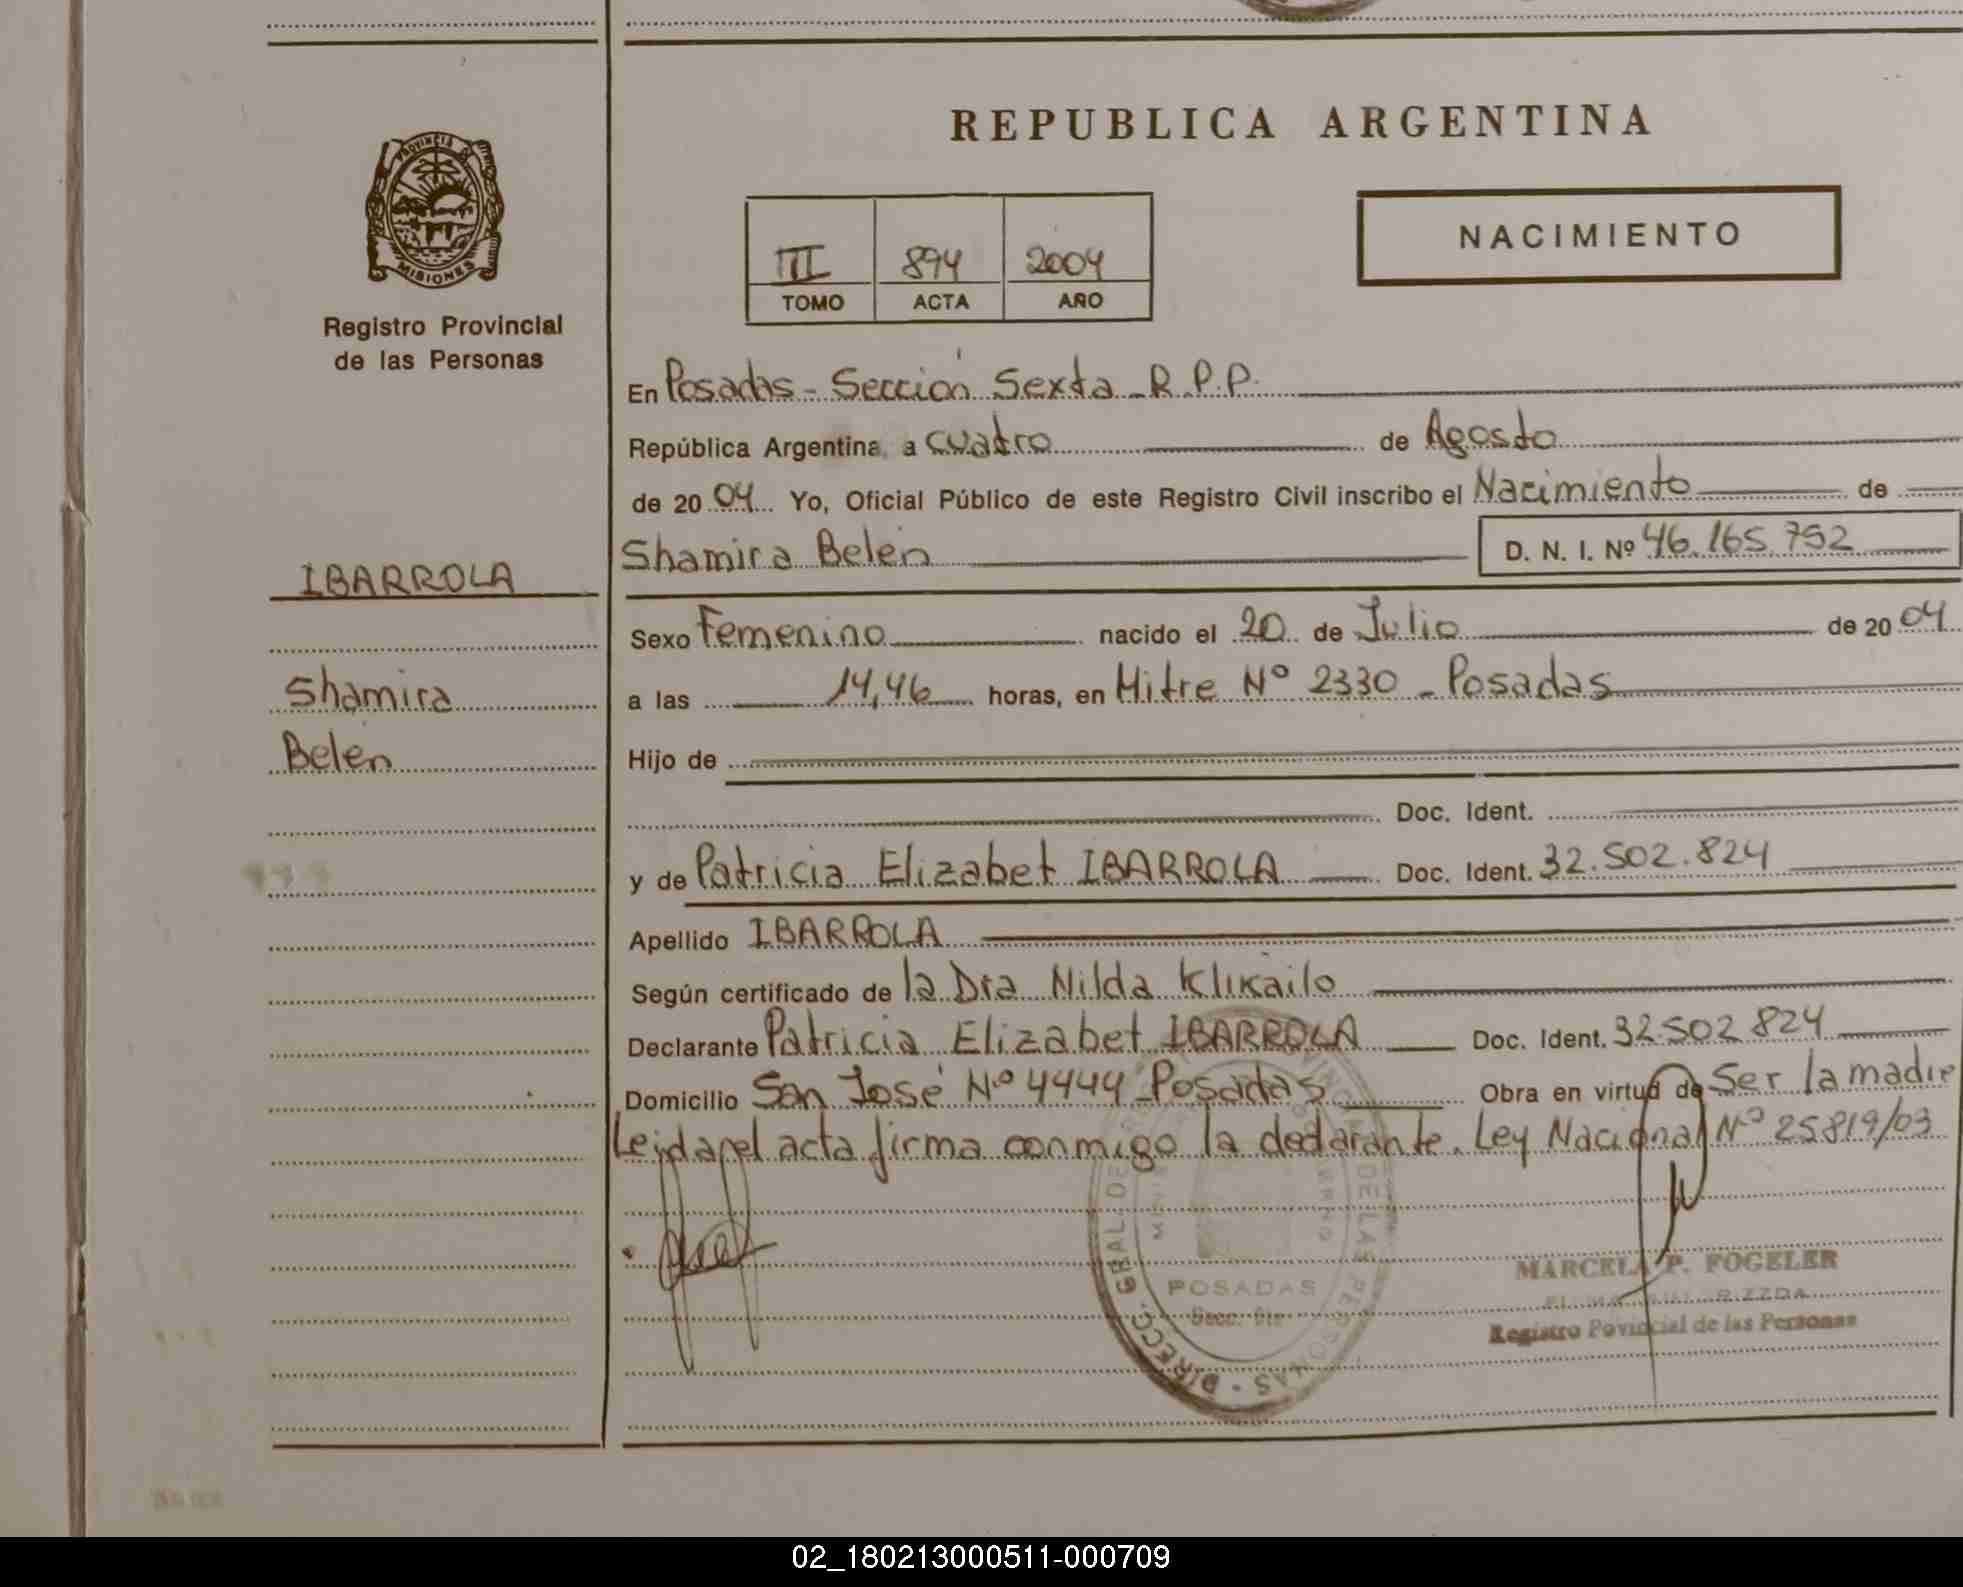 REPUBLICA ARGENTINA
PROVINCIA DE
MISIONES
Registro Provincial
de las Personas
NACIMIENTO
III 894 2004
TOMO ACTA AÑO
En Posadas - Sección Sexta - R.P.P.
República Argentina, a cuatro de Agosto
de 2004 Yo, Oficial Público de este Registro Civil inscribo el Nacimiento de
Shamira Belén D. N. I. Nº 46.165.752
IBARROLA
Shamira
Belén
Sexo Femenino nacido el 20 de Julio de 2004
a las 14,46 horas, en Mitre Nº 2330 - Posadas
Hijo de
Doc. Ident.
y de Patricia Elizabet IBARROLA Doc. Ident. 32.502.824
Apellido IBARROLA
Según certificado de la Dra Nilda Klikailo
Declarante Patricia Elizabet IBARROLA Doc. Ident. 32.502.824
Domicilio San José Nº 4444 Posadas Obra en virtud de Ser la madre
Leída el acta firma conmigo la declarante. Ley Nacional Nº 25819/03
DIRECC. GRAL. DE
DE LAS PERSONAS
POSADAS
MARCELA P. FOGELER
Registro Povincial de las Personas
02_180213000511-000709